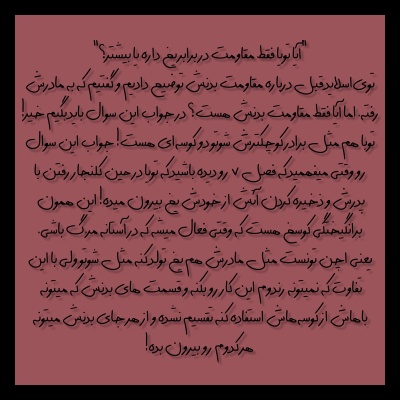 "آیا تویا فقط مقاومت در برابر یخ داره یا بیشتر؟"
توی اسلاید قبل درباره مقاومت بدنش توضیح دادیم و گفتیم که به مادرش
رفته. اما آیا فقط مقاومت بدنش هست؟ در جواب این سوال باید بگیم خیر!
تویا هم مثل برادر کوچکترش شوتو دو کوسه‌ای هست! جواب این سوال
رو وقتی میفهمید که فصل ۷ رو دیده باشید که تویا در حین کلنجار رفتن با
پدرش و ذخیره کردن آتش از خودش یخ بیرون میده! این همون
برانگیختگی کوسه هست که وقتی فعال میشه که در آستانه مرگ باشی.
یعنی اجن تونست مثل مادرش هم یخ تولید کنه مثل شوتو ولی با این
تفاوت که نمیتونه رندوم این کار رو بکنه و قسمت های بدنش که میتونه
باهاش از کوسه‌هاش استفاده کنه تقسیم نشده و از هر جای بدنش میتونه
هرکدوم رو بیرون بده!